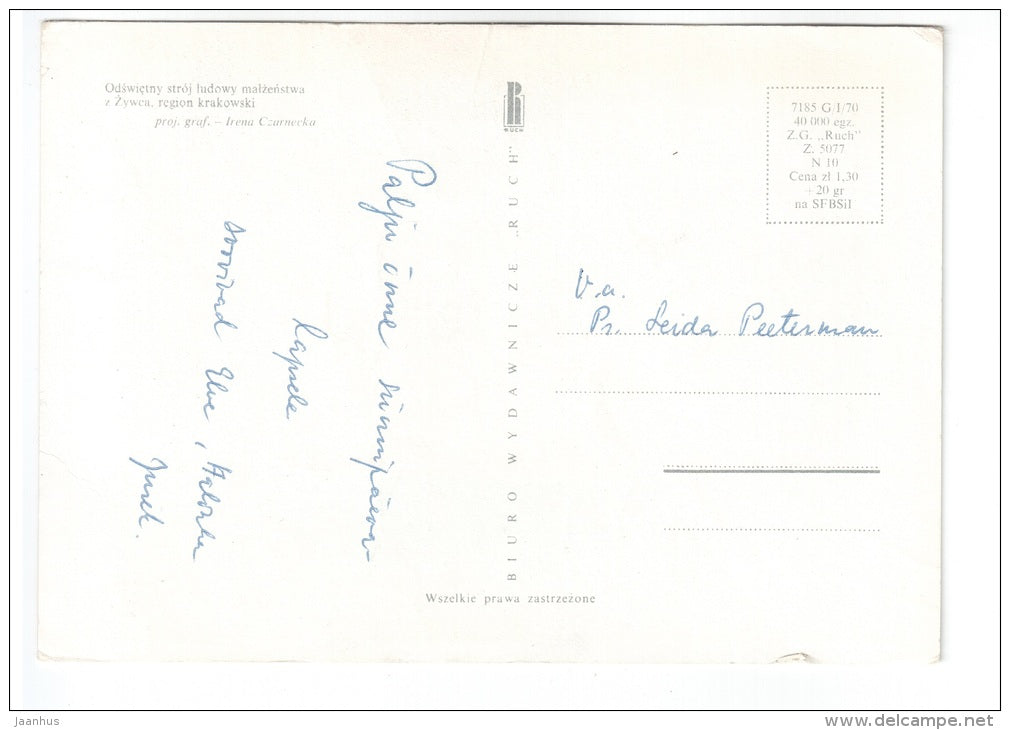 Odświętny strój ludowy małżeństwa
z Żywca, region krakowski
proj. graf. – Irena Czarnecka
Palju õnne sünnipäeva-
lapsele
soovivad Elve, Halszka
Jurek.
RUCH
BIURO WYDAWNICZE „RUCH”
Wszelkie prawa zastrzeżone
7185 G/I/70
40 000 egz.
Z.G. „Ruch”
Z. 5077
N 10
Cena zł 1,30
+ 20 gr
na SFBSiI
V.a.
Pr. Leida Peeterman
jaanhus
www.delcampe.net